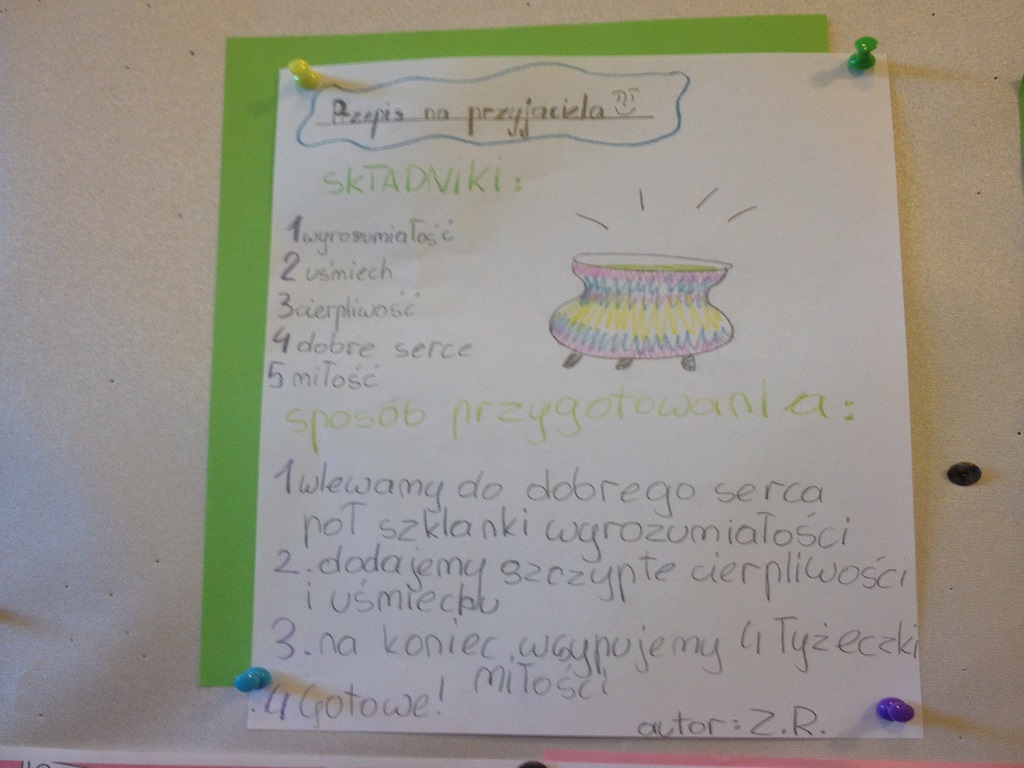 Przepis na przyjaciela
SKŁADNIKI:
1 wyrozumiałość
2 uśmiech
3 cierpliwość
4 dobre serce
5 miłość
sposób przygotowania:
1 wlewamy do dobrego serca
poł szklanki wyrozumiałości
2. dodajemy szczypte cierpliwości
i uśmiechu
3. na koniec wsypujemy 4 łyżeczki
miłości
4 Gotowe!
autor: Z.R.